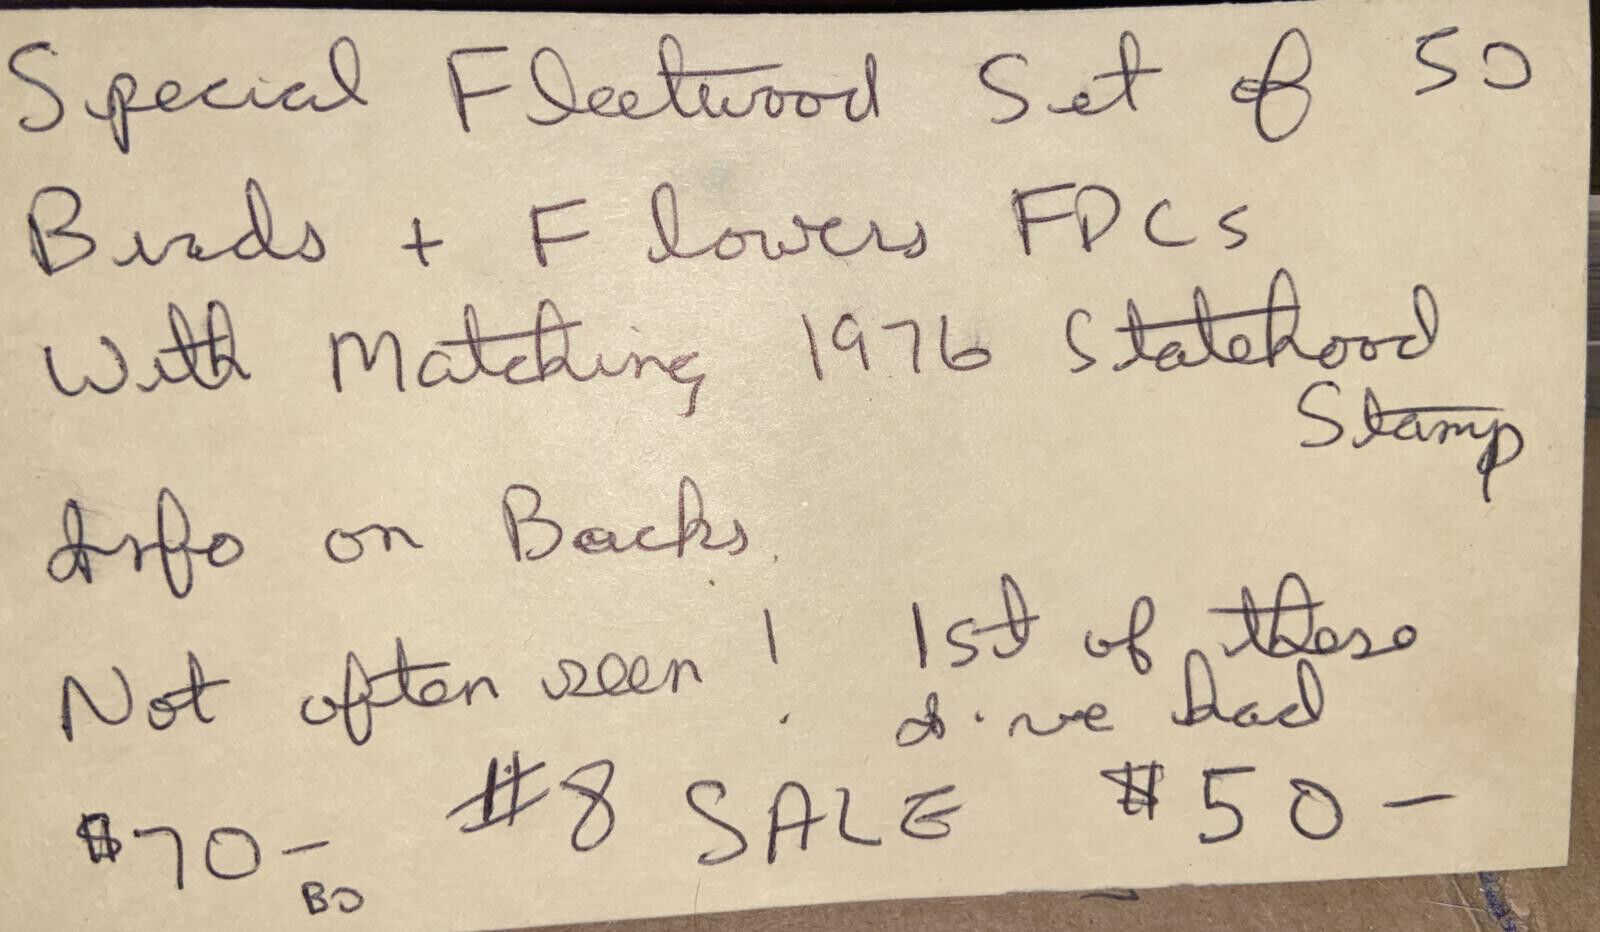 Special Fleetwood Set of 50
Birds + Flowers FDCs
With Matching 1976 Statehood
Stamp
Info on Backs.
Not often seen! 1st of these
I've had
$70-
BO
#8 SALE $50-